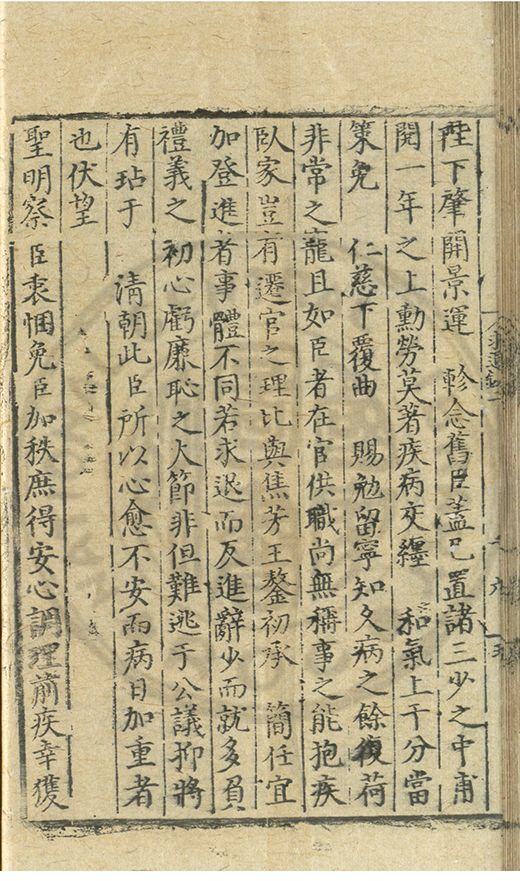 陛下肇開景運　軫念舊臣蓋已置諸三少之中甫
閱一年之上勳勞莫著疾病交纏　和氣上干分當
策免　仁慈下覆曲　賜勉留寧知久病之餘復荷
非常之寵且如臣者在官供職尚無稱事之能抱疾
臥家豈有遷官之理比與焦芳王鏊初承　簡任宜
加登進者事體不同若求退而反進辭少而就多負
禮義之　初心虧廉恥之大節非但難逃于公議抑將
有玷于　清朝此臣所以心愈不安而病日加重者
也伏望
聖明察　臣衷悃免臣加秩庶得安心調理前疾幸獲